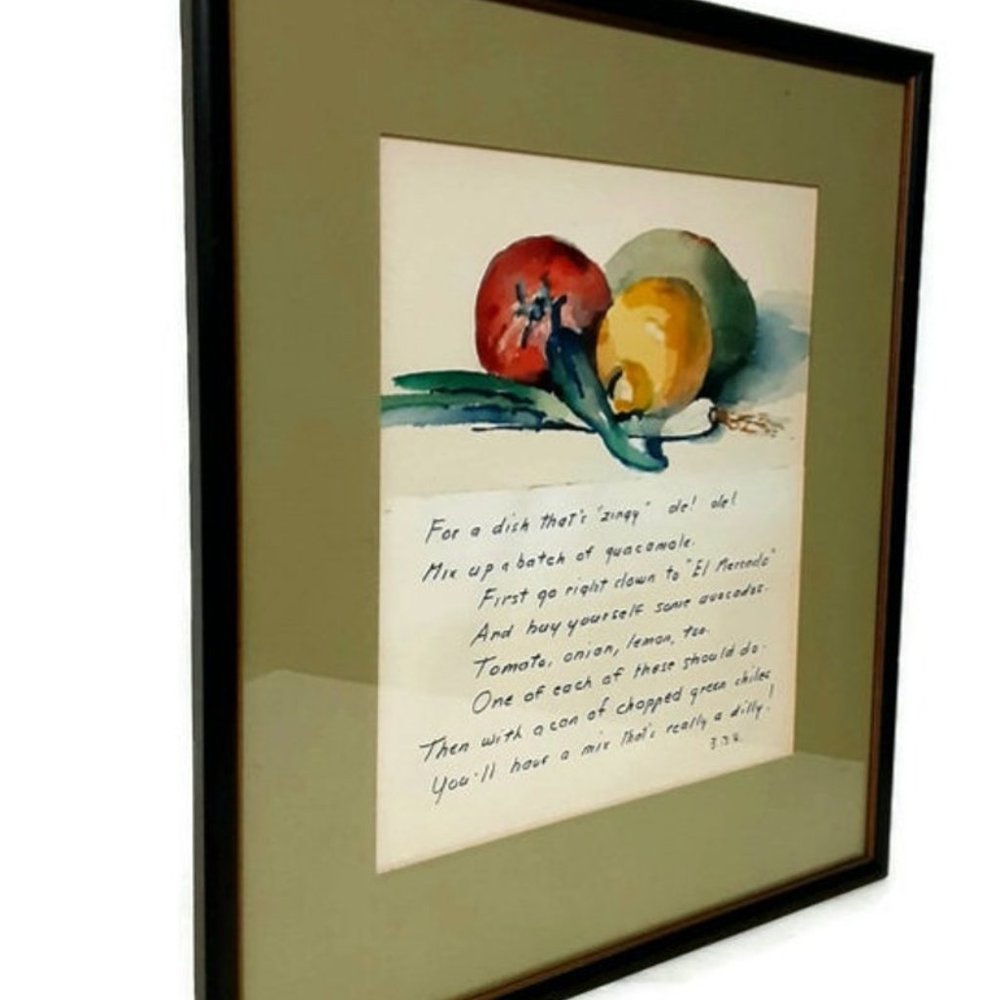 For a dish that's "zingy" ole! ole!
Mix up a batch of guacamole.
First go right down to "El Mercado"
And buy yourself some avocados.
Tomato, onion, lemon, too.
One of each of these should do.
Then with a can of chopped green chiles
You'll have a mix that's really a dilly!